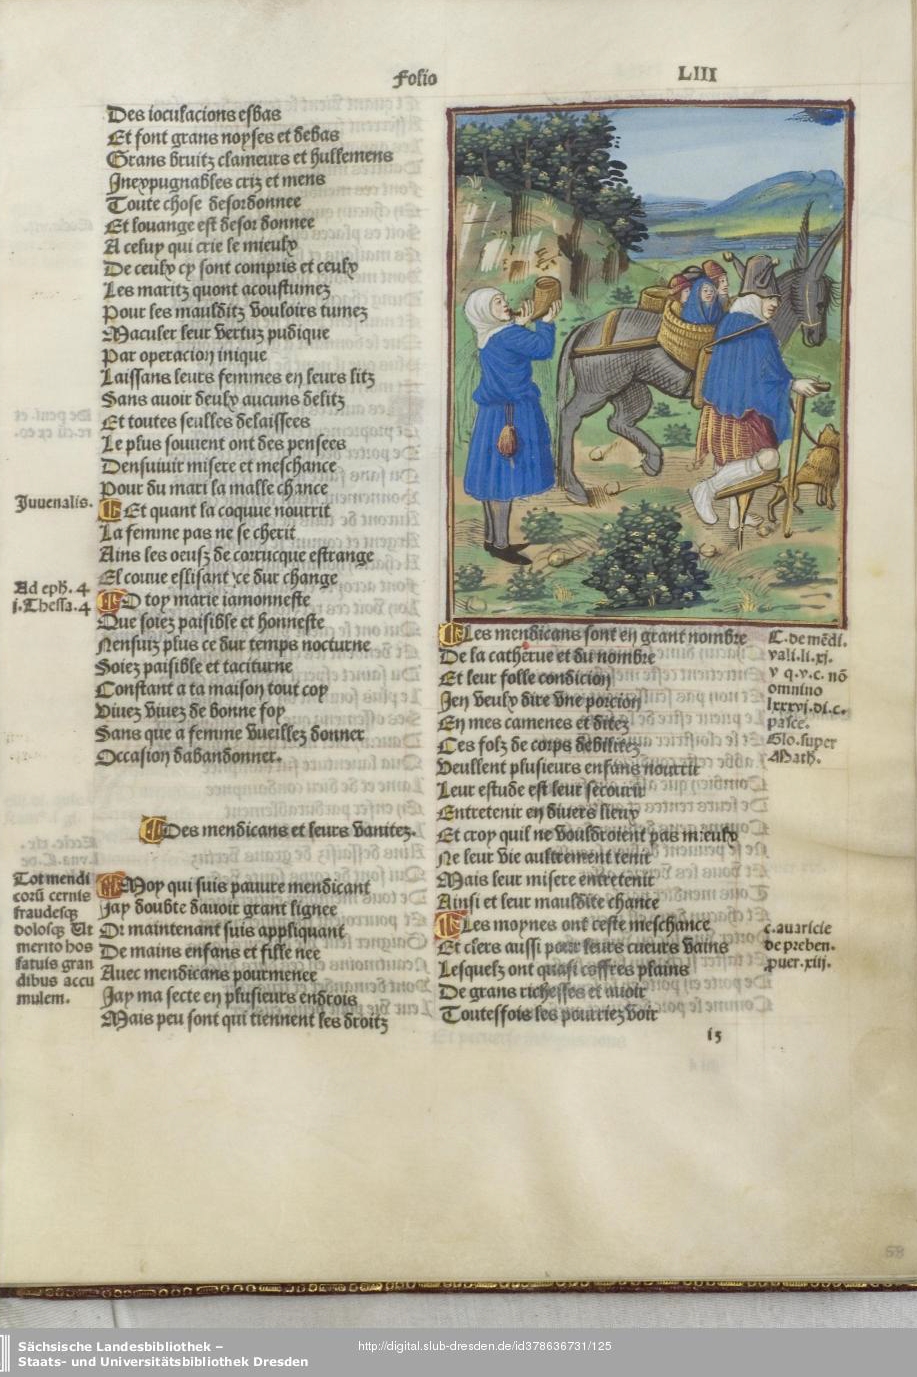 Folio
LIII
Des ioculacions esbas
Et font grans noyses et debas
Grans bruitz clameurs et hullemens
Inexpugnables criz et mens
Toute chose desordonnee
Et louange est desordonnee
A celuy qui crie le mieulx
De ceulx cy sont compris et ceulx
Les maritz quont acoustumez
Pour les mauldits vouloirs tumez
Maculer leur vertuz pudique
Par operacion inique
Laissans leurs femmes en leurs litz
Sans auoir deulx aucuns delitz
Et toutes seulles delaissees
Le plus souuent ont des pensees
Densuiuir misere et meschance
Pour du mari la malle chance
Iuuenalis.
Et quant la coquue nourrit
La femme pas ne se cherit
Ains les oeufz de corrucque estrange
El couue eslisant ce dur change
Ad eph. 4
i. Thessa. 4
O toy marie iamonneste
Que soiez paisible et honneste
Nensuiz plus ce dur temps nocturne
Soiez paisible et taciturne
Constant a ta maison tout coy
Viuez viuez de bonne foy
Sans que a femme vueillez donner
Occasion dabandonner.
Des mendicans et leurs vanitez.
Tot mendi
corū cernis
fraudesqȝ
dolosqȝ Ut
merito hos
fatuis gran
dibus accu
mulem.
Moy qui suis pauure mendicant
Jay doubte dauoir grant lignee
Or maintenant suis appliquant
De mains enfans et fille nee
Auec mendicans pourmenee
Jay ma secte en plusieurs endrois
Mais peu sont qui tiennent les droitz
Les mendicans sont en grant nombre
De la catherue et du nombre
Et leur folle condicion
Jen veulx dire vne porcion
En mes camenes et ditez
Ces folz de corps debilitez
Veullent plusieurs enfans nourrir
Leur estude est leur secourir
Entretenir en diuers lieux
Et croy quil ne vouldroient pas mieulx
Ne leur vie aultrement tenir
Mais leur misere entretenir
Ainsi et leur mauldite chance
C. de mēdi.
vali. li. xi.
v q. v. c. nō
omnino
lxxxvi. di. c.
pasce.
Glo. super
Math.
Les moynes ont ceste meschance
Et clers aussi pour leurs cueurs vains
Lesquelz ont quasi coffres plains
De grans richesses et auoir
Toutesfois les pourriez voir
c. auaricie
de preben.
puer. xiii.
i5
58
Sächsische Landesbibliothek –
Staats- und Universitätsbibliothek Dresden
http://digital.slub-dresden.de/id378636731/125